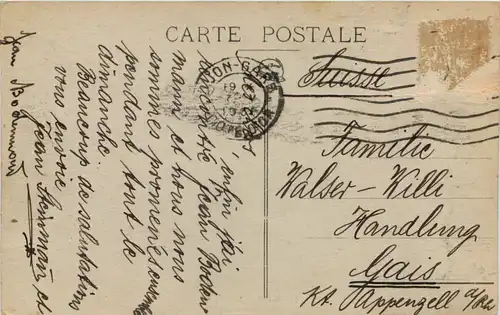 CARTE POSTALE
Suisse
Familie
Walser-Willi
Handlung
Gais
Kt. Appenzell a/Rh
enfin j'ai
rencontré Jean Boden
mann et nous nous
sommes promené en
pendant tout le
dimanche
Beaucoup de salutations
vous envoie
Jean et
Jean Bodenmann